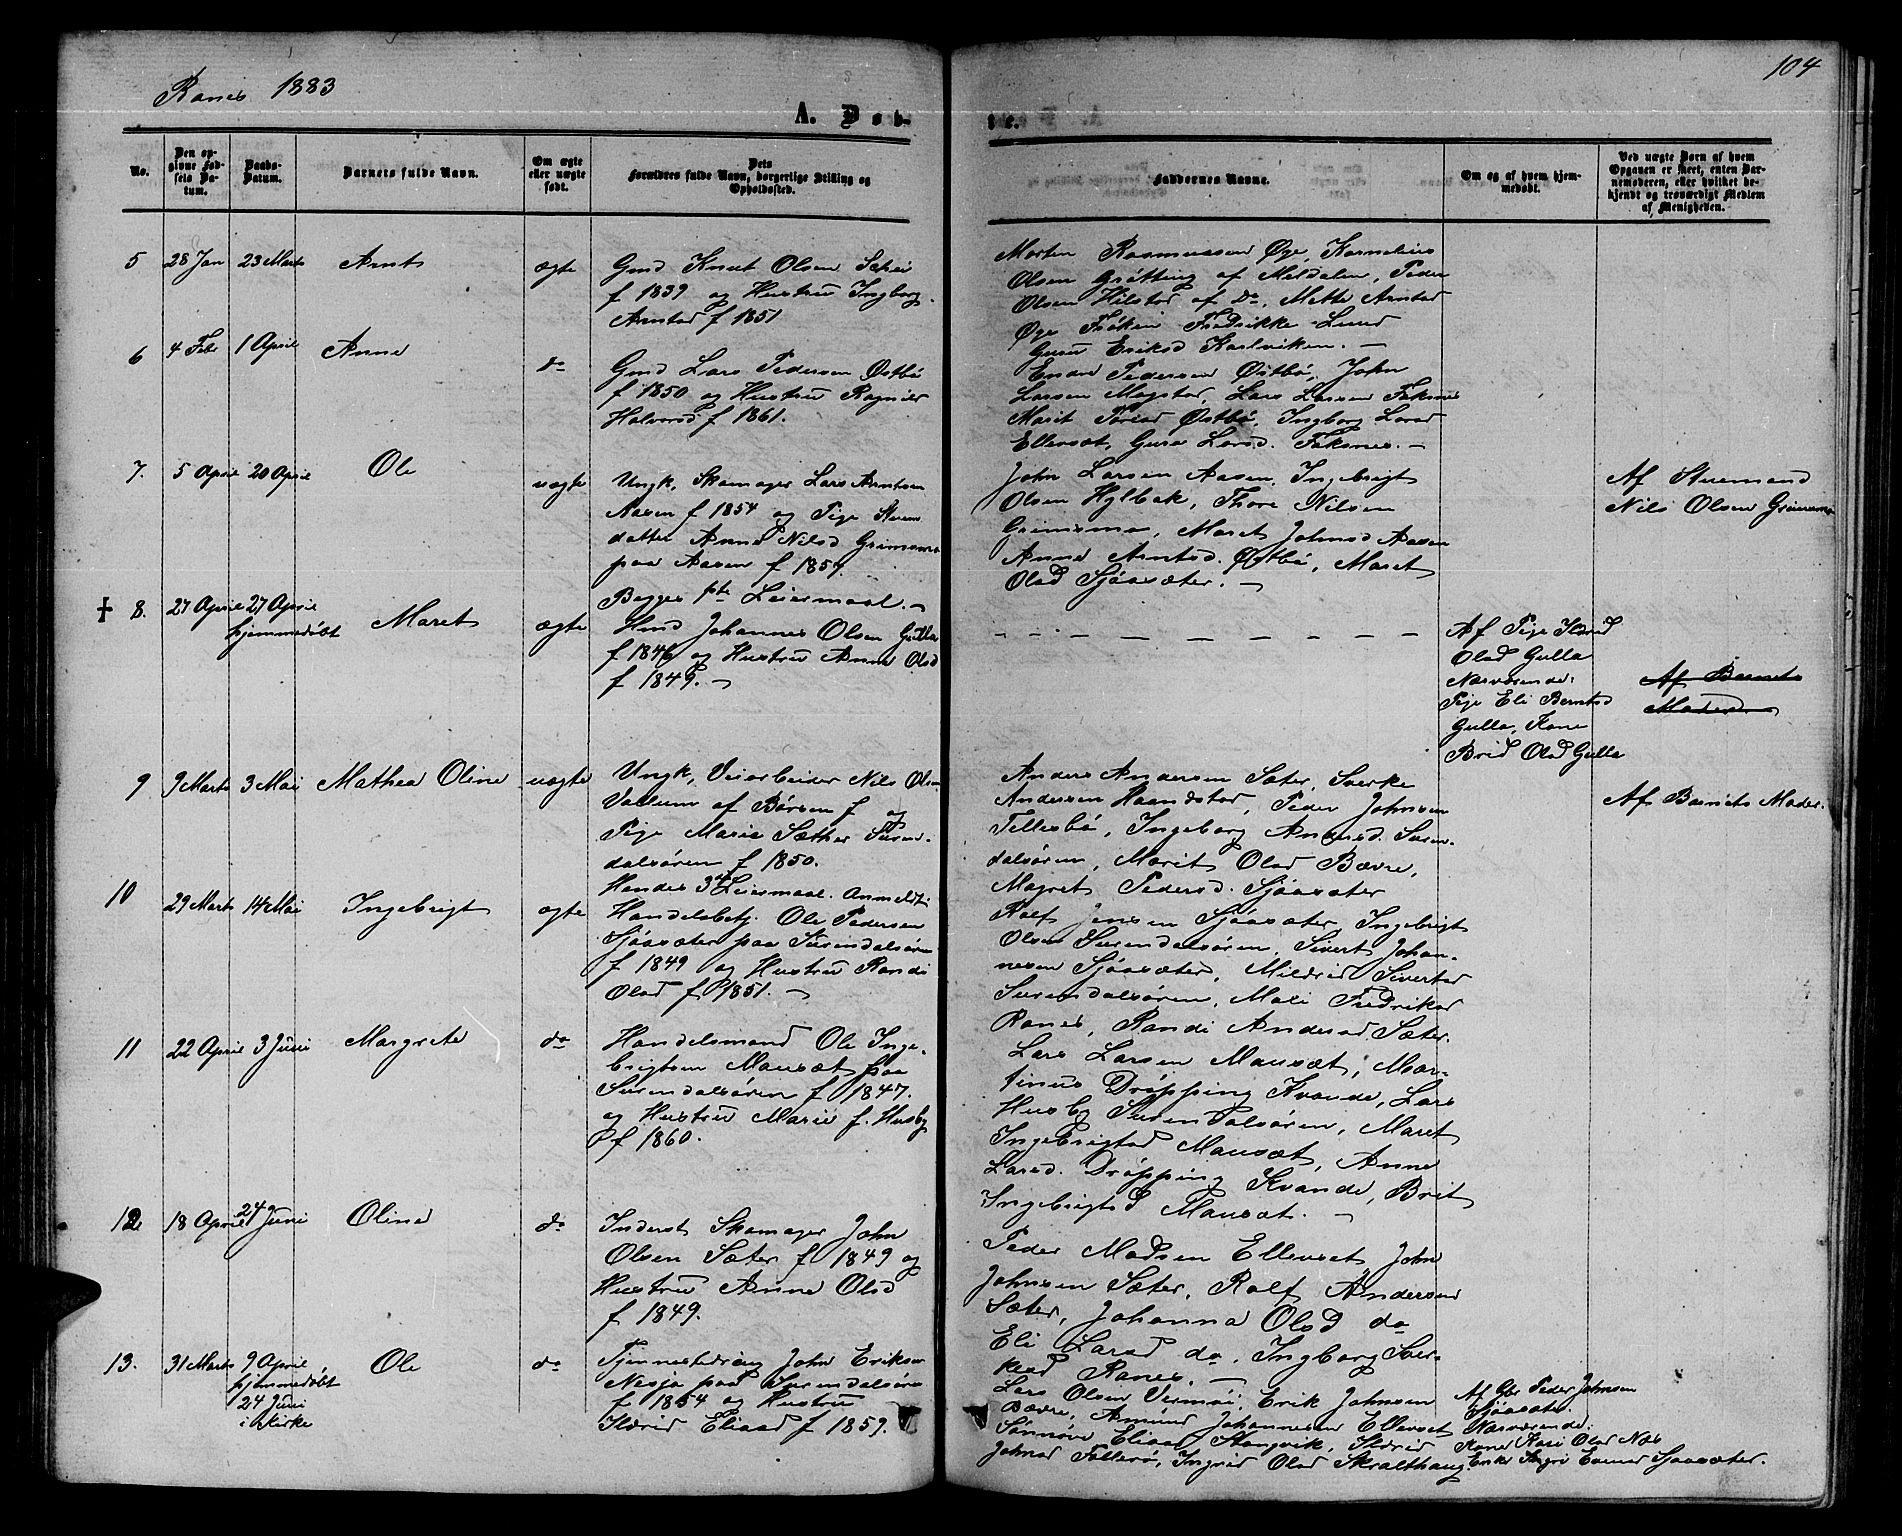 Ranes 1883
104
A. Døb-
te.
No.
Den op-
givne Fød-
sels Da-
tum.
Daabs-
Datum.
Barnets fulde Navn.
Om ægte
eller uægte
født.
Dets
Forældres fulde Navn, borgerlige Stilling og
Opholdssted.
Faddernes Navne.
Om og af hvem hjem-
medøbt.
Ved uægte Børn af hvem
Opgaven er skeet, enten Bar-
nemoderen, eller hvilket be-
kjendt og troværdigt Medlem
af Menigheden.
5 28 Jan 23 Marts Arnt ægte
Gmd Knut Olsen
f 1839 og Hustru Ingborg
Arnstad f 1851
Morten Rasmussen Øye, Kornelius
Olsen Grøtting af Meldalen, Peder
Olsen Hilstad af Do, Mette Arnstad
Øye Frøken Fredrikke Lund
Guru Eriksd Karlviken. —
6 4 Febr 1 April Anne do
Gmd Lars Pedersen Østbø
f 1850 og Hustru Ragnild
Halvorsd f 1861.
Endre Pedersen Østbø, John
Larsen Mogstad, Lars Larsen Faksnes
Marit Østbø, Ingborg Larsd
Ellevset, Guru Larsd. Faksnes. —
7. 5 April 20 April Ole uægte
Ungk. Skomager Lars Arntsen
Aasen f 1854 og Pige Stuem
datter Anne Nilsd Grimsmo
paa Aasen f 1857.
Begges 1ste Leiermaal. —
John Larsen Aasen, Ingebrigt
Olsen Hylbak, Thore Nilsen
Grimsmo, Maret Johnsd Aasen
Anne Arntsd. Østbø, Maret
Olsd Sjøasæter. —
Af Stuemand
Nils Olsen Grimsmo
+ 8. 27 April 27 April
hjemmedøbt
Maret ægte
Hmd Johannes Olsen Gulla
f 1846 og Hustru Anne Olsd
f 1849. —
Af Pige Ildrid
Olsd Gulla
Nærværende:
Pige Eli Berntsd
Gulla, Kone
Brid Olsd Gulla
Af Barnets
Moder
9 9 Marts 3 Mai Mathea Oline uægte
Ungk. Veiarbeider Nils Olsen
Vollum af Børsen f og
Pige Marie Sæther Suren-
dalsøren f 1850.
Hendes 3die Leiermaal. Anmeldt
Anders Andersen Sæter, Sverke
Andersen Haandstad, Peder Johnsen
Tellesbø, Ingeborg Andersd. Suren-
dalsøren, Marit Olsd Bævre,
Magret Pedersd. Sjøasæter
Af Barnets Moder.
10 29 Marts 14 Mai Ingebrigt ægte
Handelsbetj. Ole Pedersen
Sjøasæter paa Surendalsøren
f 1849 og Hustru Randi
Olsd f 1851. —
Rolf Jensen Sjøasæter, Ingebrigt
Olsen Surendalsøren, Sivert Johan-
nesen Sjøasæter, Mildrid Sivertsd
Surendalsøren, Mali Fredriksd
Ranes, Randi Andersd Sæter.
11 22 April 3 Juni Margrete do
Handelsmand Ole Inge-
brigtsen Mauset paa
Surendalsøren f 1847.
og Hustru Marie f. Husby
f 1860.
Lars Larsen Mauset, Mar-
tinus Drøpping Kvande, Lars
Husby Surendalsøren, Maret
Ingebrigtsd Mauset, Anne
Larsd. Drøpping Kvande, Brit
Ingebrigtsd Mauset. —
12 18 April 24 Juni Oline do
Inderst Skomager John
Olsen Sæter f 1849 og
Hustru Anne Olsd
f 1849.
Peder Madsen Ellevset, John
Johnsen Sæter, Rolf Andersen
Sæter, Johanna Olsd do
Eli Larsd do, Ingborg Sver-
kesd Ranes. —
13. 31 Marts 9 April
hjemmedøbt
24 Juni
i Kirke
Ole do
Tjenestedreng John Eriksen
Nesja paa Surendalsøren
f 1854 og Hustru
Ildrid Eliasd f 1859.
Lars Olsen Vermøi, Erik Johnsen
Bævre, Amund Johannesen Ellevset
Sønnøve Eliasd Stangvik, Ildrid
Johnsd Tellesbø, Ingrid Olsd Skralthaug.
Af Gbr Peder Johnsen
Sjøasæter.
Nærværende:
Kone Kari Olsd Næs
Enke Ingri Evensd Sjøasæter.